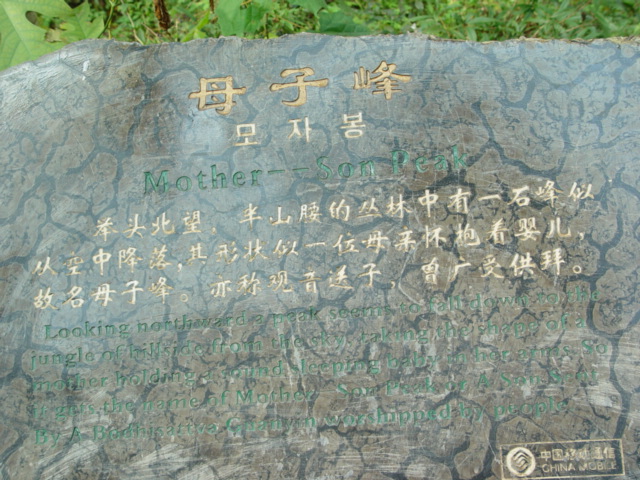 母子峰
모자봉
Mother--Son Peak
举头北望，半山腰的丛林中有一石峰似
从空中降落，其形状似一位母亲怀抱着婴儿，
故名母子峰。亦称观音送子，曾广受供拜。
Looking northward a peak seems to fall down to the
jungle of hillside from the sky, taking the shape of a
mother holding a sound sleeping baby in her arms. So
it gets the name of Mother--Son Peak or A Son Sent
By A Bodhisattva Guanyin worshipped by people.
中国移动通信
CHINA MOBILE